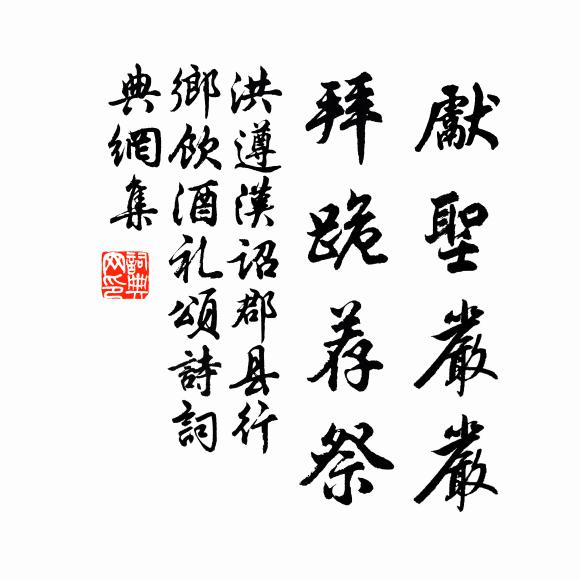 獻聖嚴嚴
拜跪荐祭
洪遵漢詔郡县行
鄉飲酒礼頌詩詞
典網集
詞典網印